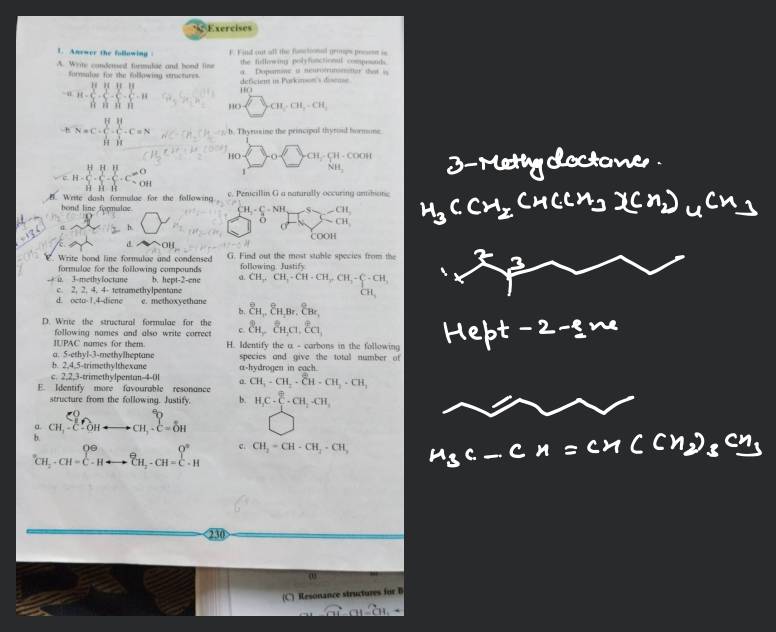 Exercises
1. Answer the following :
A. Write condensed formulae and bond line
formulae for the following structures.
H H H H
a. H-C-C-C-C-H
H H H H
H H
b. N≡C-C-C-C≡N
H H
H H H
c. H-C-C-C
O
OH
H H H
B. Write dash formulae for the following
bond line formulae.
a. b.
c. d. OH
C. Write bond line formulae and condensed
formulae for the following compounds
a. 3-methyloctane b. hept-2-ene
c. 2, 2, 4, 4- tetramethylpentane
d. octa-1,4-diene e. methoxyethane
D. Write the structural formulae for the
following names and also write correct
IUPAC names for them.
a. 5-ethyl-3-methylheptane
b. 2,4,5-trimethylthexane
c. 2,2,3-trimethylpentan-4-01
E. Identify more favourable resonance
structure from the following. Justify.
a. CH₃ - C - OH ⟷ CH₃ - C = OH
b.
CH₂ - CH = C - H ⟷ CH₂ - CH = C - H
F. Find out all the functional groups present in
the following polyfunctional compounds.
a. Dopamine a neurotransmitter that is
deficient in Parkinson's disease.
HO
HO
b. Thyroxine the principal thyroid hormone.
I
HO -O- CH₂ - CH - COOH
I NH₂
c. Penicillin G a naturally occuring antibiotic
CH₂ - C - NH
O
S
CH₃
CH₃
O
N
COOH
G. Find out the most stable species from the
following. Justify.
a. CH₃, CH₃ - CH - CH₃, CH₃ - C - CH₃
CH₃
b. CH₃, CH₂Br, CBr₃
c. CH₃, CH₂Cl, CCl₃
H. Identify the α - carbons in the following
species and give the total number of
α-hydrogen in each.
a. CH₃ - CH₂ - CH - CH₂ - CH₃
b. H₃C - C - CH₂ -CH₃
c. CH₂ = CH - CH₂ - CH₃
230
(C) Resonance structures for B
3-Methyloctane.
H₃CCH₂CHCCH₃)(CH₂)₄CH₃
1 2 3
Hept-2-ene
H₃C - CH = CH(CH₂)₃CH₃